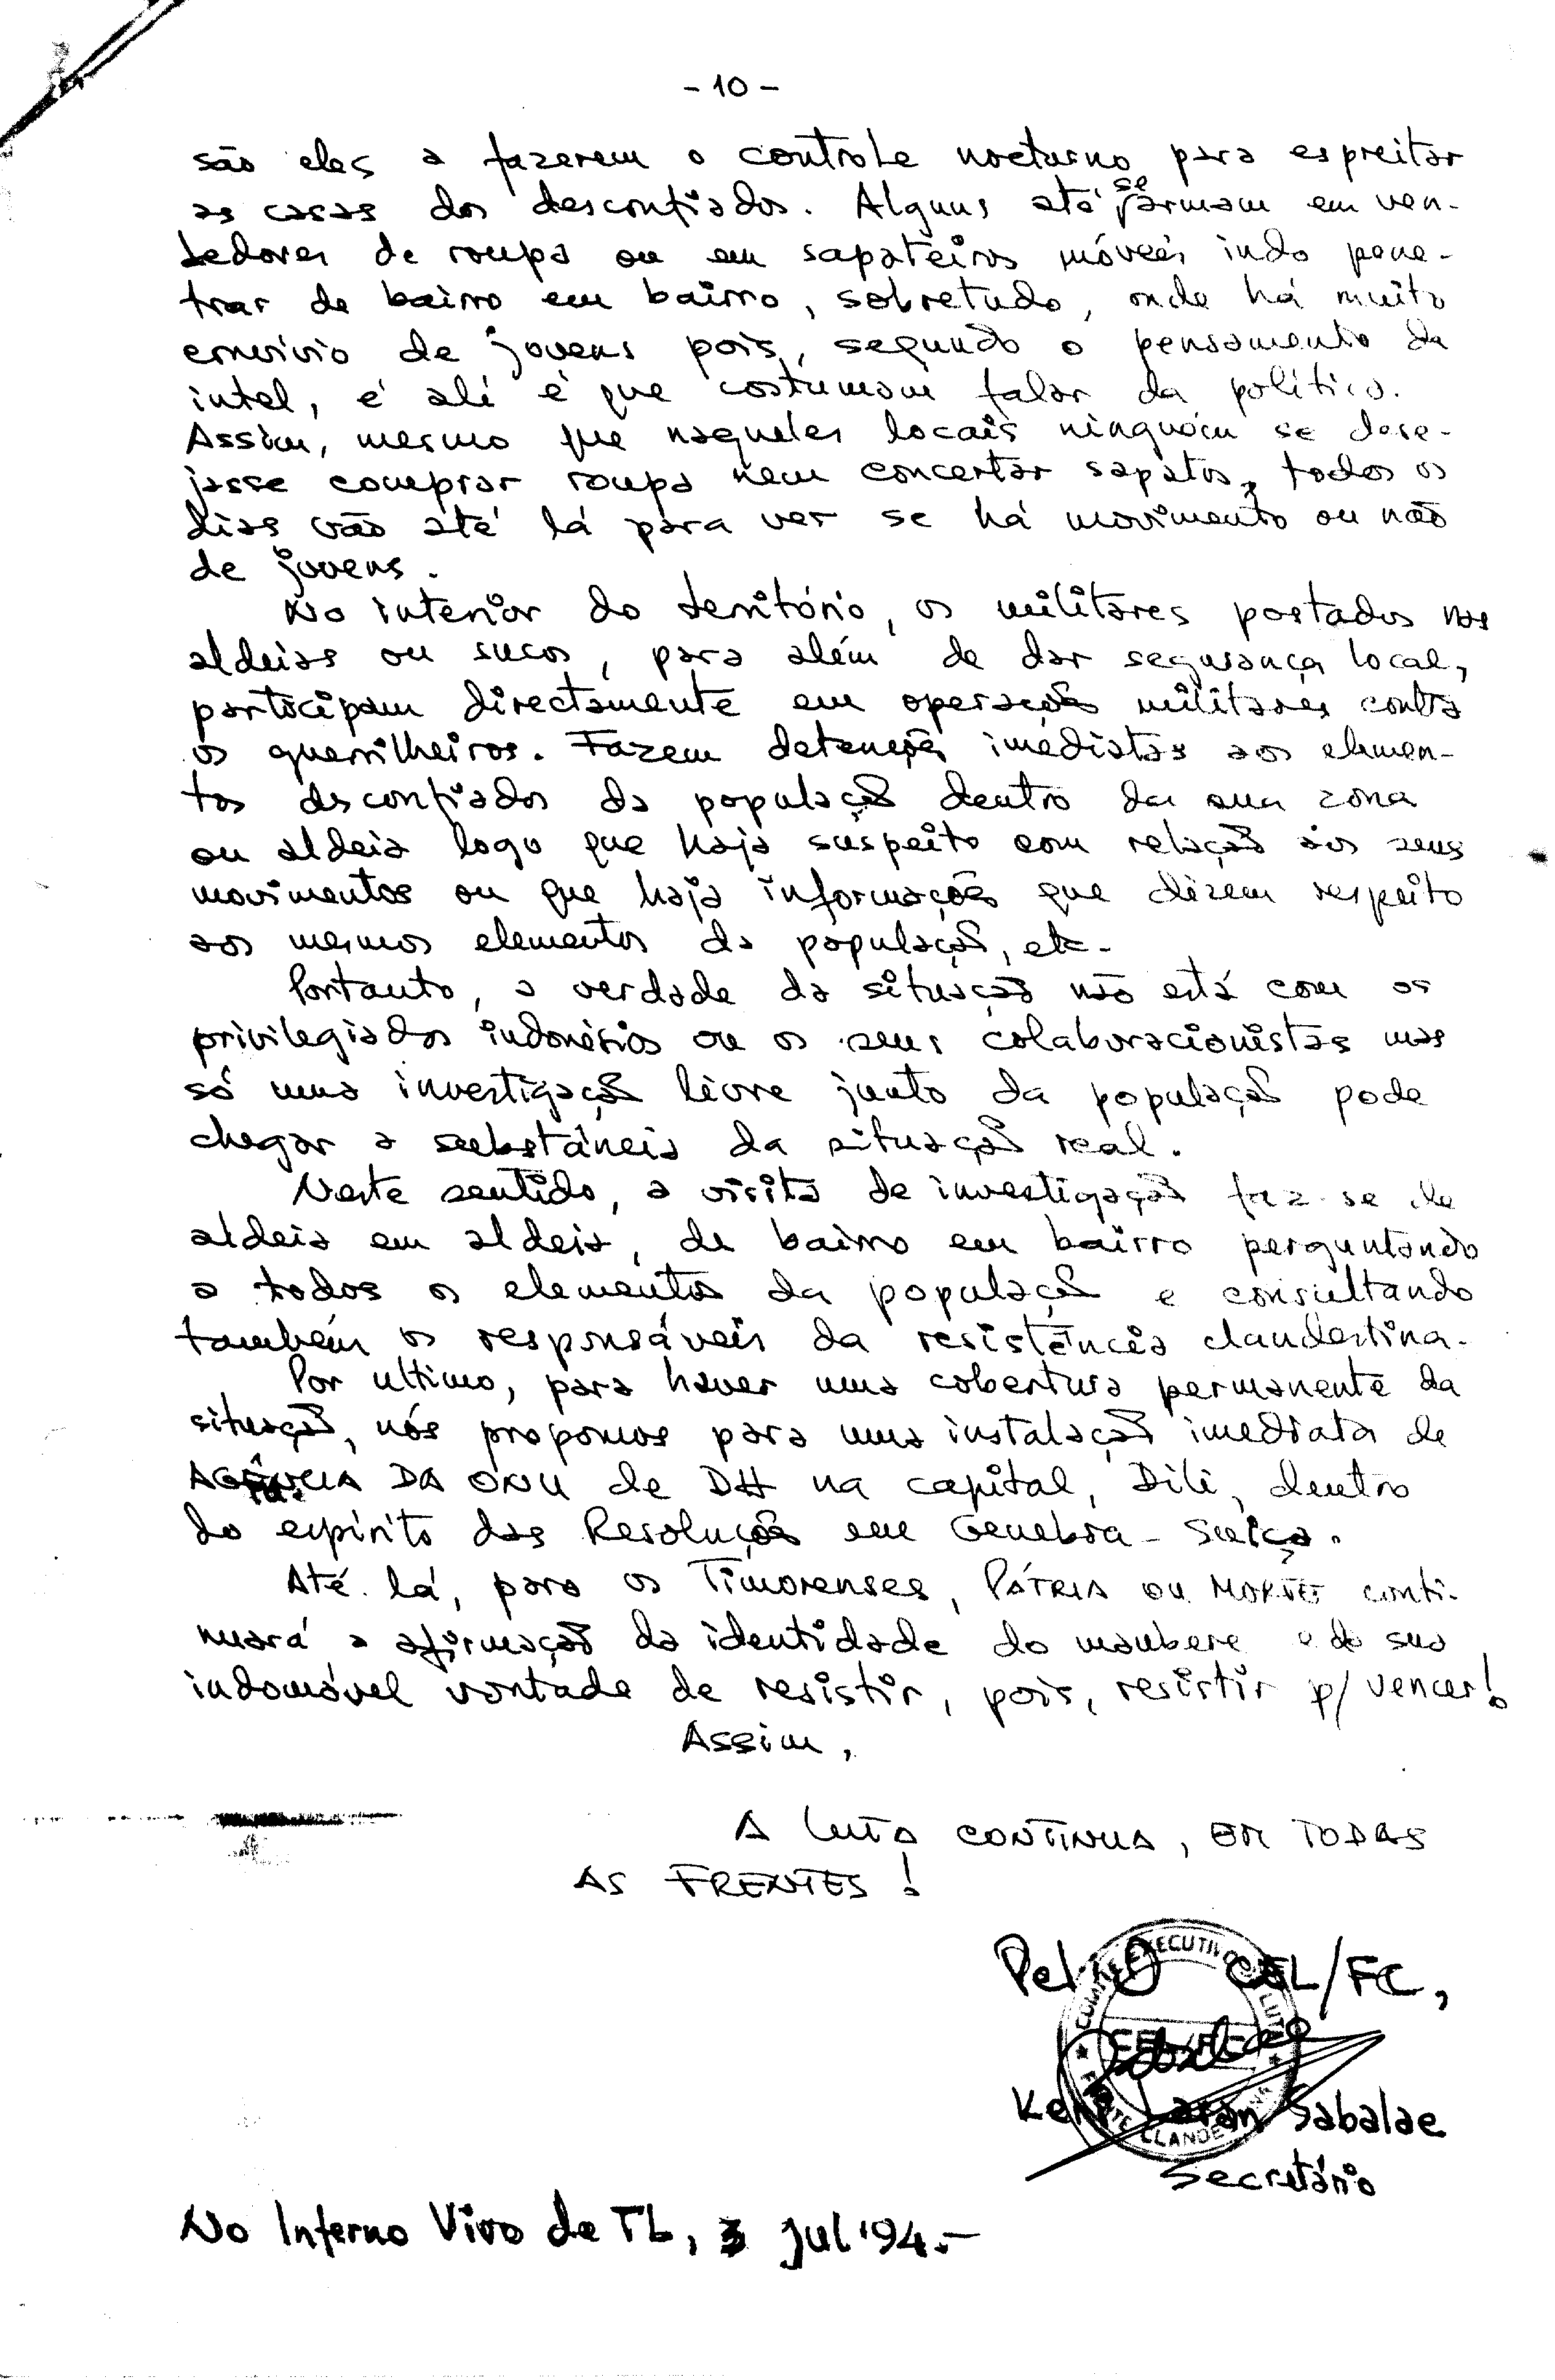 - 10 -
são eles a fazerem o controle nocturno para espreitar
as casas dos desconfiados. Alguns até se formam em ven-
dedores de roupa ou em sapateiros móveis indo pene-
trar de bairro em bairro, sobretudo, onde há muito
convívio de jovens pois, segundo o pensamento da
intel, é ali é que costumam falar da política.
Assim, mesmo que naqueles locais ninguém se dese-
jasse comprar roupa nem concertar sapatos, todos os
dias vão até lá para ver se há movimento ou não
de jovens.
No interior do território, os militares postados nas
aldeias ou sucos, para além de dar segurança local,
participam directamente em operações militares contra
os guerrilheiros. Fazem detenções imediatas aos elemen-
tos desconfiados da população dentro da sua zona
ou aldeia logo que haja suspeito com relação aos seus
movimentos ou que haja informações que dizem respeito
aos mesmos elementos da população, etc.
Portanto, a verdade da situação não está com os
privilegiados indonésios ou os seus colaboracionistas mas
só uma investigação livre junto da população pode
chegar a substância da situação real.
Neste sentido, a visita de investigação faz-se de
aldeia em aldeia, de bairro em bairro perguntando
a todos os elementos da população e consultando
também os responsáveis da resistência clandestina.
Por ultimo, para haver uma cobertura permanente da
situação, nós propomos para uma instalação imediata de
AGÊNCIA DA ONU de DH na capital, Dili, dentro
do espírito das Resoluções em Genebra - Suiça.
Até lá, para os Timorenses, PÁTRIA OU MORTE conti-
nuará a afirmação da identidade do maubere e da sua
indomável vontade de resistir, pois, resistir p/ vencer!
Assim,
A LUTA CONTINUA, EM TODAS
AS FRENTES!
Pel'O CEL/FC,
COMITÉ EXECUTIVO DA LUTA
CEL/FC
FRENTE CLANDESTINA
Sabalae
Keri Laran Sabalae
Secretário
No Inferno Vivo de TL, 3 jul '94.-